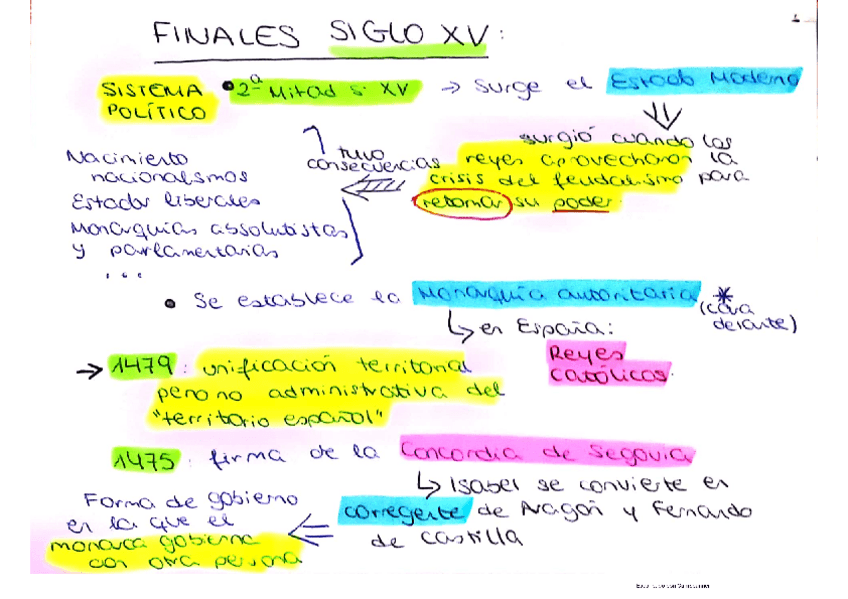 1
FINALES SIGLO XV:
SISTEMA POLÍTICO
• 2ª Mitad s. XV → surge el Estado Moderno
surgió cuando los
reyes aprovecharon la
crisis del feudalismo para
retomar su poder.
tuvo
consecuencias
Nacimiento
nacionalismos
Estados liberales
Monarquías absolutistas
y parlamentarias
...
• Se establece la Monarquía autoritaria *
(cara
delante)
↳ en España:
Reyes
católicos.
→ 1479: unificación territorial
pero no administrativa del
"territorio español"
1475: firma de la Concordia de Segovia
↳ Isabel se convierte en
corregente de Aragón y Fernando
de Castilla
Forma de gobierno
en la que el
monarca gobierna
con otra persona